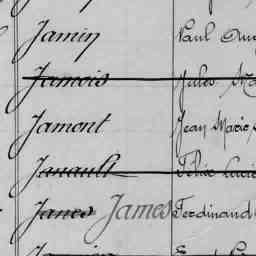 Jamin Paul
Jamois Jules
Jamont Jean Marie
Janault Félix
Janes James Ferdinand